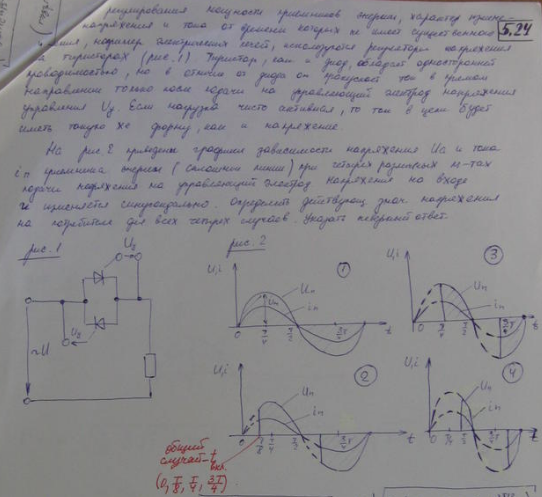 регулирования мощности приемников энергии, характер измене-
напряжения и тока от времени которых не имеет существенного
например электрических печей, используются регуляторы напряжения
на тиристорах (рис. 1). Тиристор, как и диод, обладает односторонней
проводимостью, но в отличии от диода он пропускает ток в прямом
направлении только после подачи на управляющий электрод напряжения
управления Uу. Если нагрузка чисто активная, то ток в цепи будет
иметь такую же форму, как и напряжение.
5.24
На рис. 2 приведены графики зависимости напряжения Uп и тока
iп приемника энергии (сплошные линии) при четырех различных м-тах
подачи напряжения на управляющий электрод. Напряжение на входе
u изменяется синусоидально. Определить действующ. знач. напряжения
на потребителе для всех четырех случаев. Указать неверный ответ.
рис. 1
Uу
Uу
~U
рис. 2
U,i
1
Uп
Uм
iп
0 T/4 T/2 3T/4 t
U,i
3
Uп
iп
0 T/4 T/2 3T/4 t
U,i
2
Uп
iп
0 T/8 T/4 T/2 3T/4 t
U,i
4
Uп
iп
0 t
общий
случай - t вкл.
(0, T/8, T/4, 3T/4)